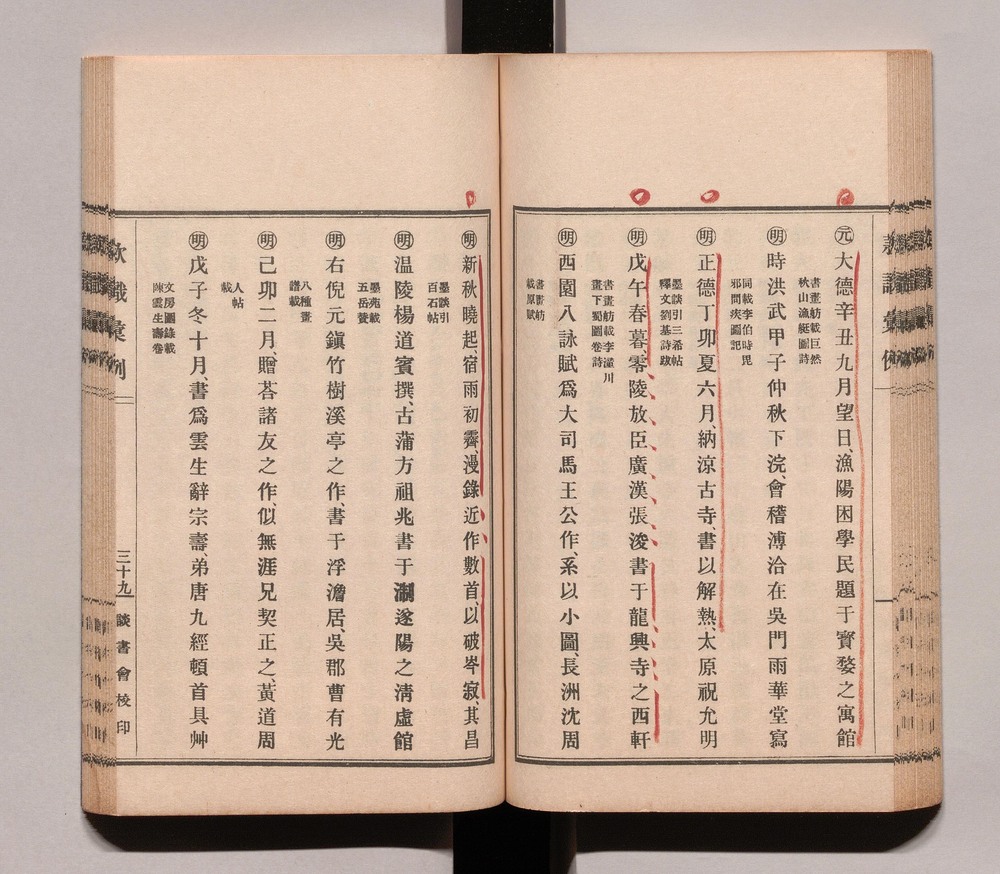 元 大德辛丑九月望日、漁陽困學民題于寶婺之寓館
書畫舫載巨然
秋山漁艇圖詩
明 時洪武甲子仲秋下浣、會稽溥洽在吳門雨華堂寫
同載李伯時毘
邪問疾圖記
明 正德丁卯夏六月、納涼古寺、書以解熱、太原祝允明
墨談引三希帖
釋文劉基詩跋
明 戊午春暮、零陵放臣廣漢張浚書于龍興寺之西軒
書畫舫載李潼川
畫下蜀圖卷詩
明 西園八詠賦爲大司馬王公作、系以小圖、長洲沈周
書畫舫
載原賦
明 新秋曉起、宿雨初霽、漫錄近作數首、以破岑寂、其昌
墨談引
百石帖
明 温陵楊道賓撰、古蒲方祖兆書于瀨遂陽之淸虛館
墨苑載
五岳贊
明 右倪元鎭竹樹溪亭之作、書于浮澹居、吳郡曹有光
八種畫
譜載
明 己卯二月、贈荅諸友之作、似無涯兄契正之、黃道周
人帖
載
明 戊子冬十月、書爲雲生辭宗壽、弟唐九經頓首具艸
文房圖錄載
陳雲生壽卷
款識彙例
三十九
談書會校印